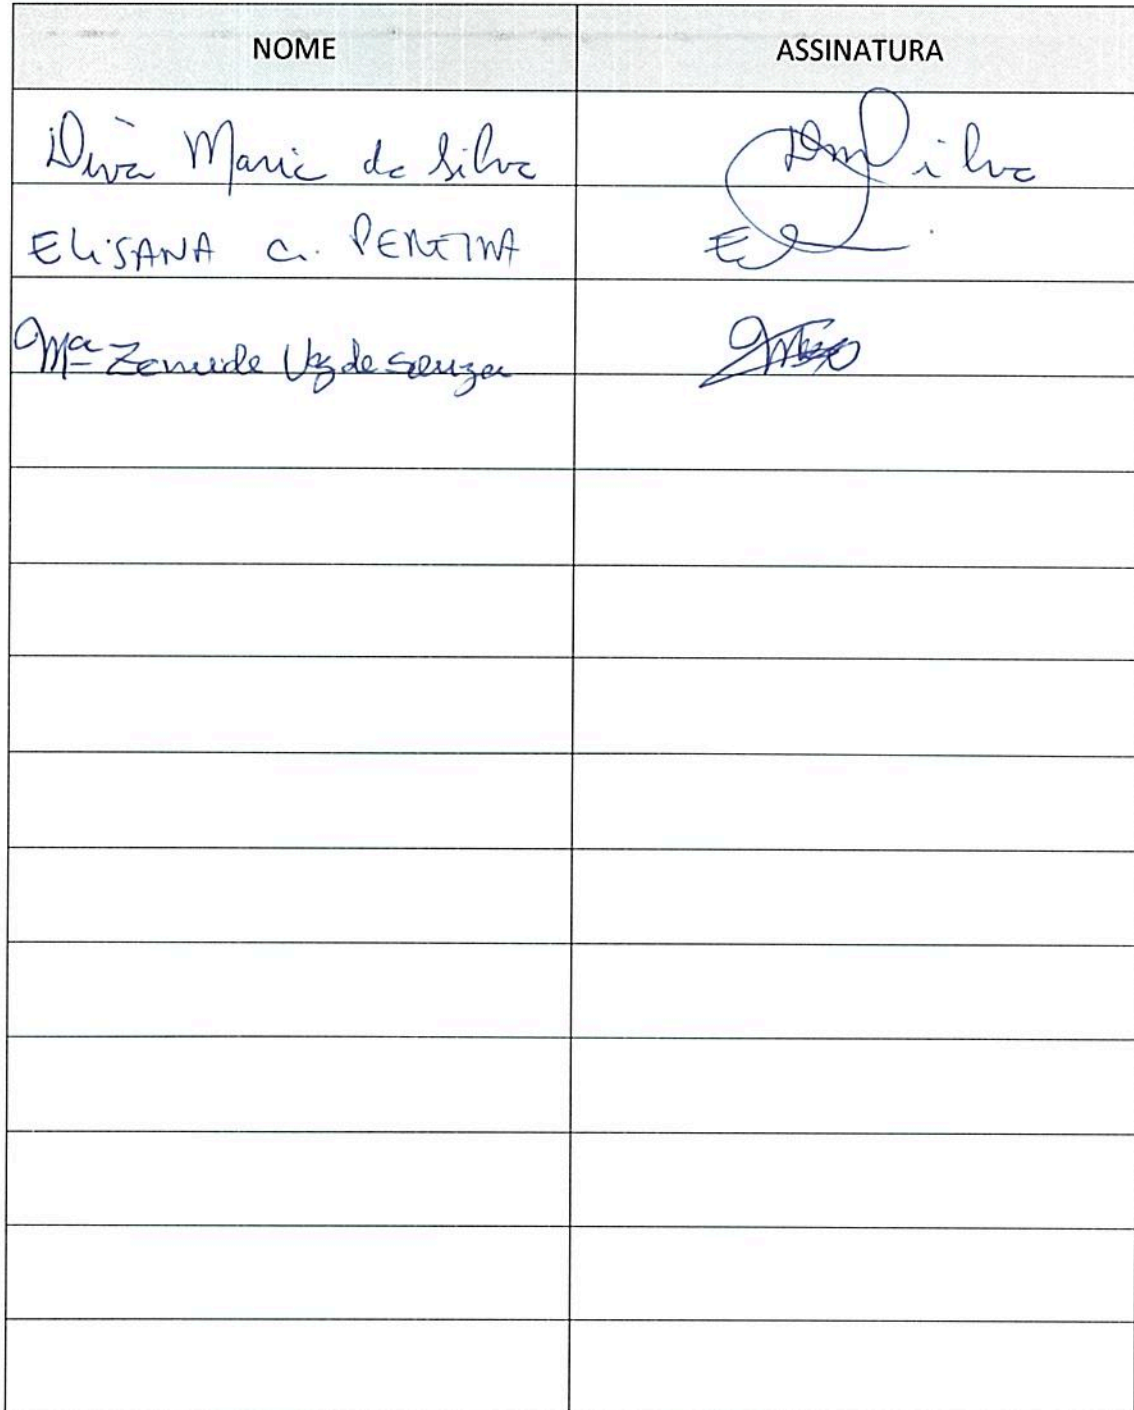 NOME ASSINATURA
Diva Maria da Silva DmSilva
ELISANA C. PEREIRA
Mª Zeneide Vz de Souza